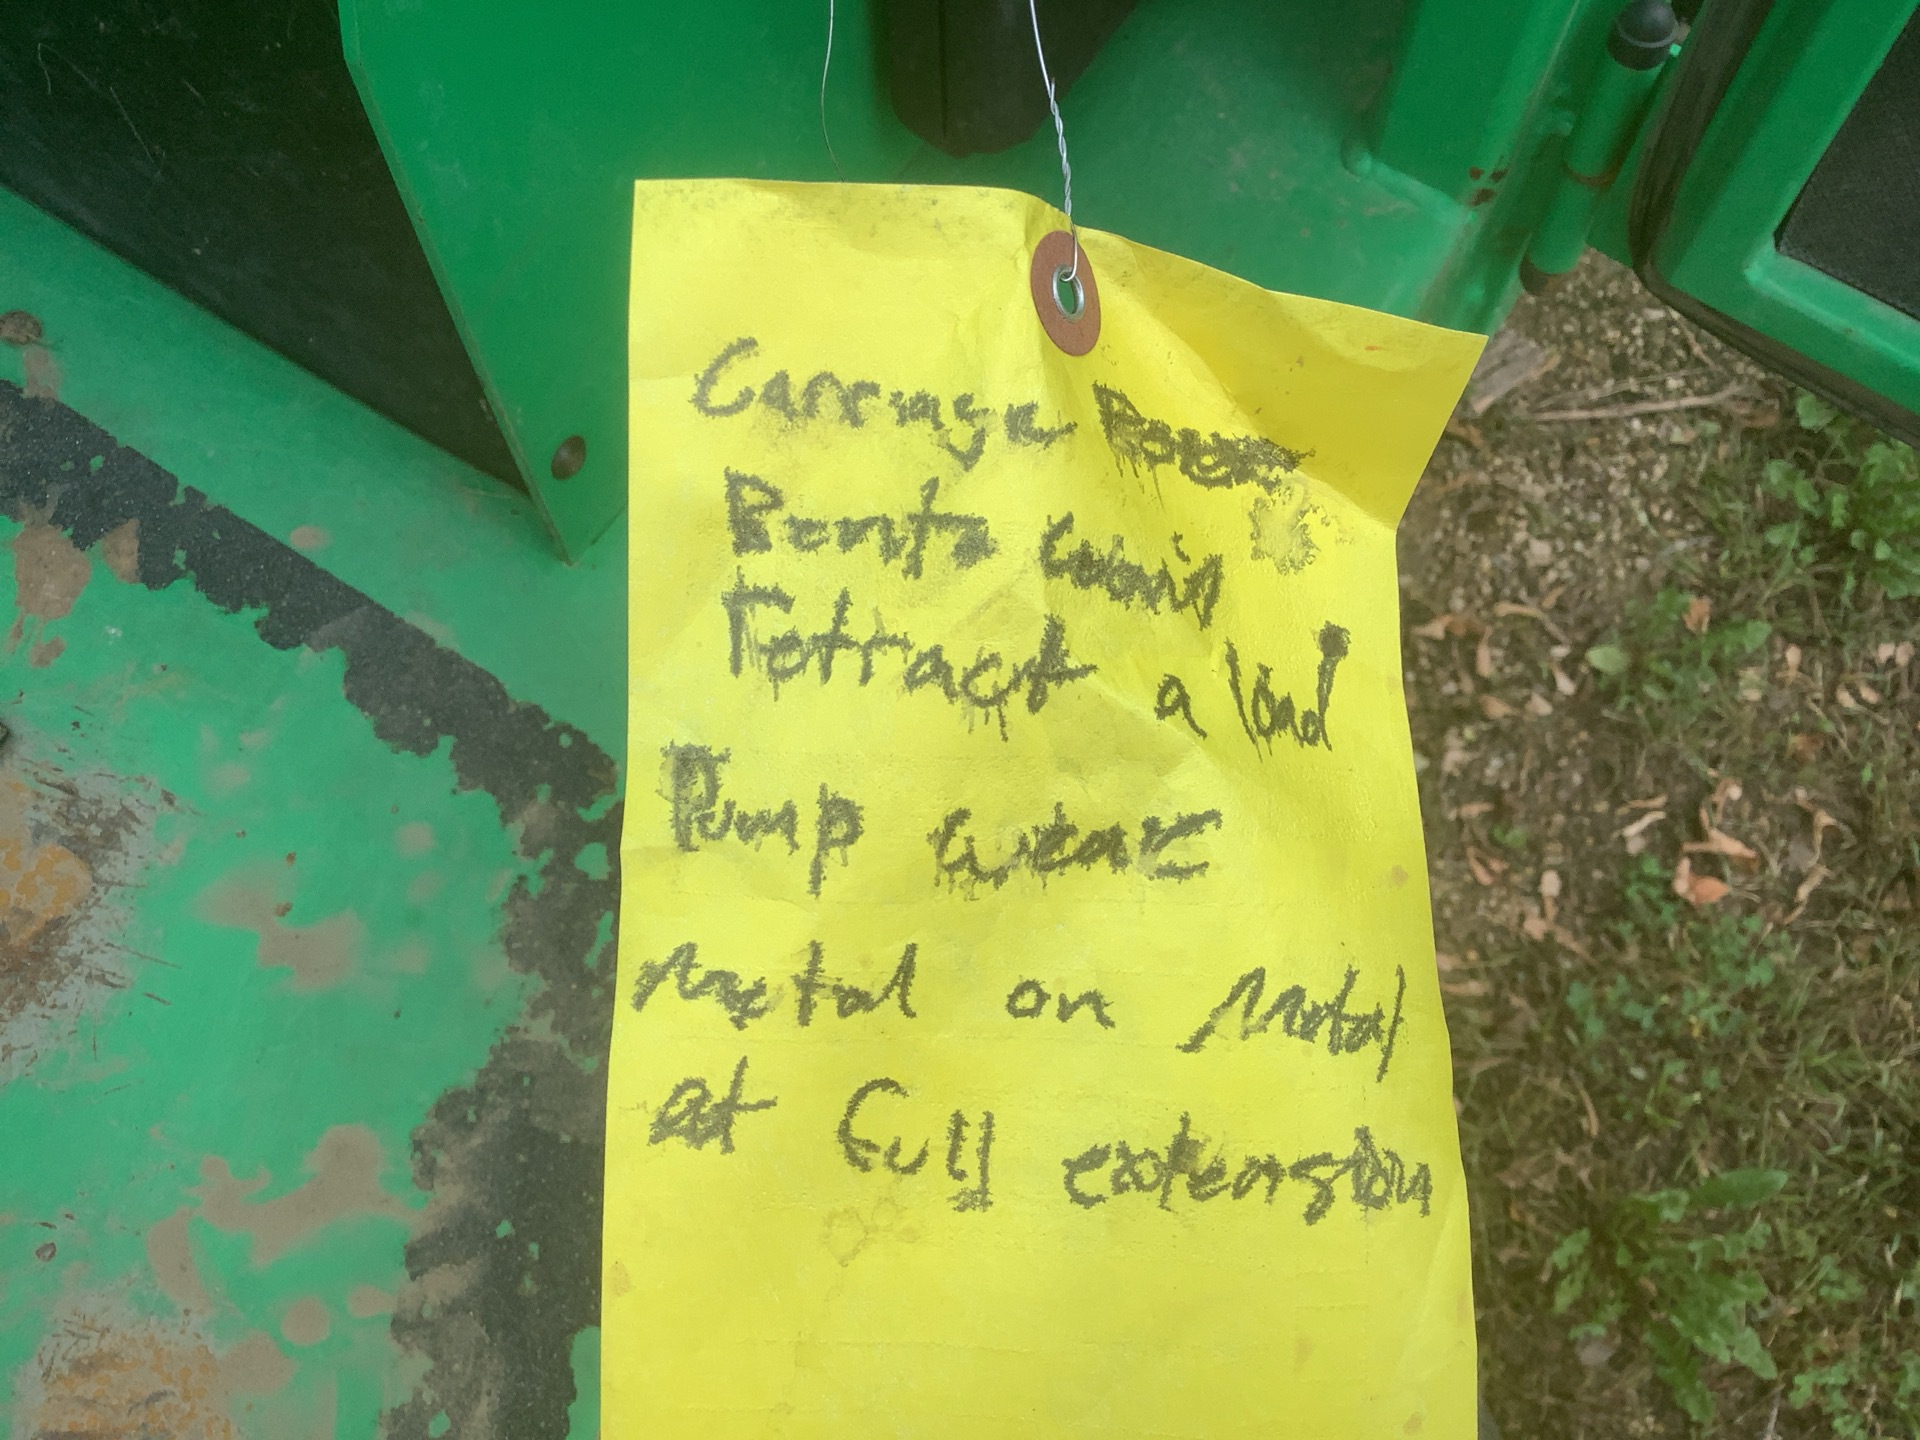 Carriage
Bent won't
retract a load
Pump wear
metal on metal
at full extension